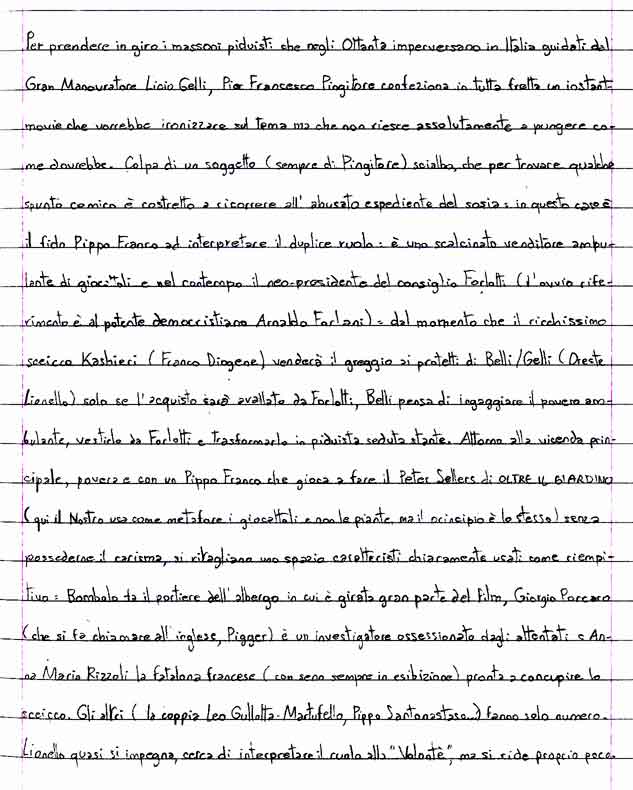 Per prendere in giro i massoni piduisti che negli Ottanta imperversano in Italia guidati dal
Gran Manovratore Licio Gelli, Pier Francesco Pingitore confeziona in tutta fretta un instant-
movie che vorrebbe ironizzare sul tema ma che non riesce assolutamente a pungere co-
me dovrebbe. Colpa di un soggetto (sempre di Pingitore) scialbo, che per trovare qualche
spunto comico è costretto a ricorrere all'abusato espediente del sosia: in questo caso è
il fido Pippo Franco ad interpretare il duplice ruolo: è uno scalcinato venditore ambu-
lante di giocattoli e nel contempo il neo-presidente del consiglio Forlotti (l'ovvio rife-
rimento è al potente democristiano Arnaldo Forlani): dal momento che il ricchissimo
sceicco Kashieri (Franco Diogene) venderà il greggio ai protetti di Belli/Gelli (Oreste
Lionello) solo se l'acquisto sarà avallato da Forlotti, Belli pensa di ingaggiare il povero am-
bulante, vestirlo da Forlotti e trasformarlo in piduista seduta stante. Attorno alla vicenda prin-
cipale, povera e con un Pippo Franco che gioca a fare il Peter Sellers di OLTRE IL GIARDINO
(qui il Nostro usa come metafore i giocattoli e non le piante, ma il principio è lo stesso) senza
possederne il carisma, si ritagliano uno spazio caratteristi chiaramente usati come riempi-
tivo: Bombolo fa il portiere dell'albergo in cui è girata gran parte del film, Giorgio Porcaro
(che si fa chiamare all'inglese, Pigger) è un investigatore ossessionato dagli attentati e An-
na Maria Rizzoli la fatalona francese (con seno sempre in esibizione) pronta a concupire lo
sceicco. Gli altri (la coppia Leo Gullotta-Martufello, Pippo Santonastaso...) fanno solo numero.
Lionello quasi si impegna, cerca di interpretare il ruolo alla "Volontè", ma si ride proprio poco.